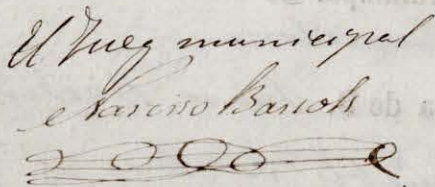 El Juez municipal
Narciso Barcols